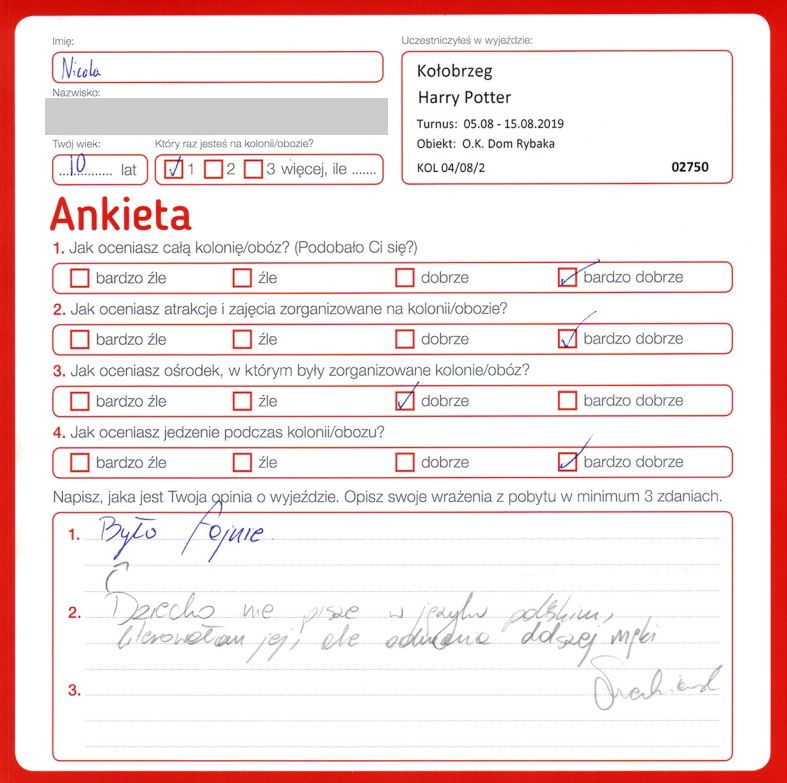 Imię:
Uczestniczyłeś w wyjeździe:
Nicola
Kołobrzeg
Harry Potter
Turnus: 05.08 - 15.08.2019
Obiekt: O.K. Dom Rybaka
KOL 04/08/2 02750
Nazwisko:
Twój wiek:
Który raz jesteś na kolonii/obozie?
10 lat
1 2 3 więcej, ile .......
Ankieta
1. Jak oceniasz całą kolonię/obóz? (Podobało Ci się?)
bardzo źle źle dobrze bardzo dobrze
2. Jak oceniasz atrakcje i zajęcia zorganizowane na kolonii/obozie?
bardzo źle źle dobrze bardzo dobrze
3. Jak oceniasz ośrodek, w którym były zorganizowane kolonie/obóz?
bardzo źle źle dobrze bardzo dobrze
4. Jak oceniasz jedzenie podczas kolonii/obozu?
bardzo źle źle dobrze bardzo dobrze
Napisz, jaka jest Twoja opinia o wyjeździe. Opisz swoje wrażenia z pobytu w minimum 3 zdaniach.
1. Było fajnie
2. Dziecko nie pisze w języku polskim,
literowałam jej, ale odmawia dalszej męki
3.